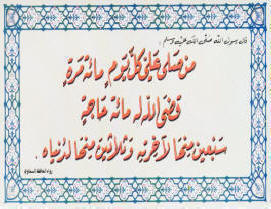 قال رسول الله صلى الله عليه وسلم
من صلى علي كل يوم مائة مرة
قضى الله له مائة حاجة
سبعين منها لآخرته وثلاثين منها لدنياه